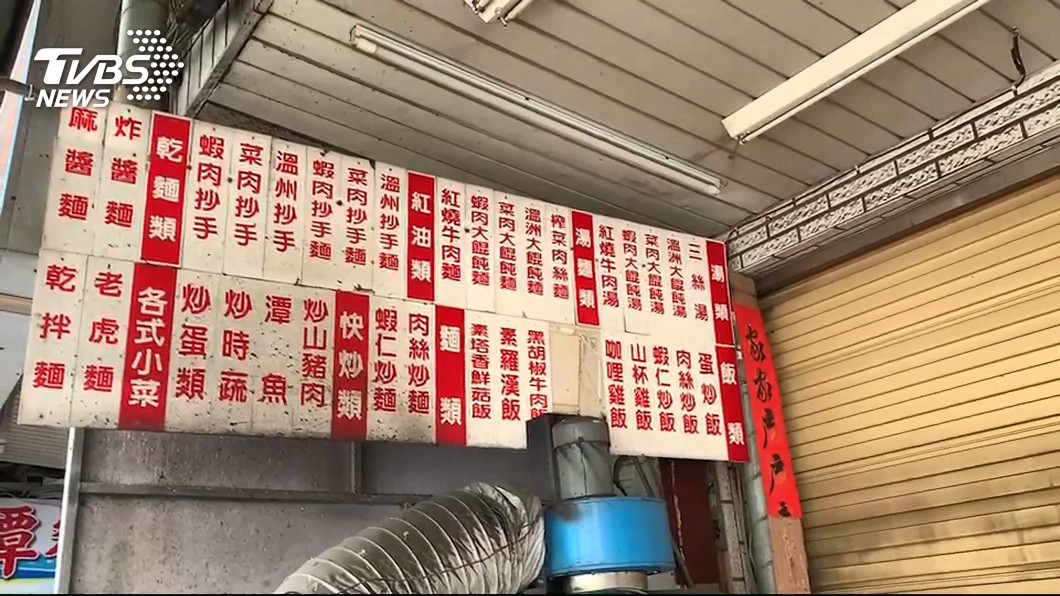 TVBS
NEWS
湯類
三絲湯
溫洲大餛飩湯
菜肉大餛飩湯
蝦肉大餛飩湯
紅燒牛肉湯
湯麵類
榨菜肉絲麵
溫洲大餛飩麵
菜肉大餛飩麵
蝦肉大餛飩麵
紅燒牛肉麵
紅油類
溫州抄手麵
菜肉抄手麵
蝦肉抄手麵
溫州抄手
菜肉抄手
蝦肉抄手
乾麵類
炸醬麵
麻醬麵
飯類
蛋炒飯
肉絲炒飯
蝦仁炒飯
山杯雞飯
咖哩雞飯
黑胡椒牛肉飯
素羅漢飯
素塔香鮮菇飯
麵類
肉絲炒麵
蝦仁炒麵
快炒類
炒山豬肉
潭魚
炒時蔬
炒蛋類
各式小菜
老虎麵
乾拌麵
家家戶戶
潭